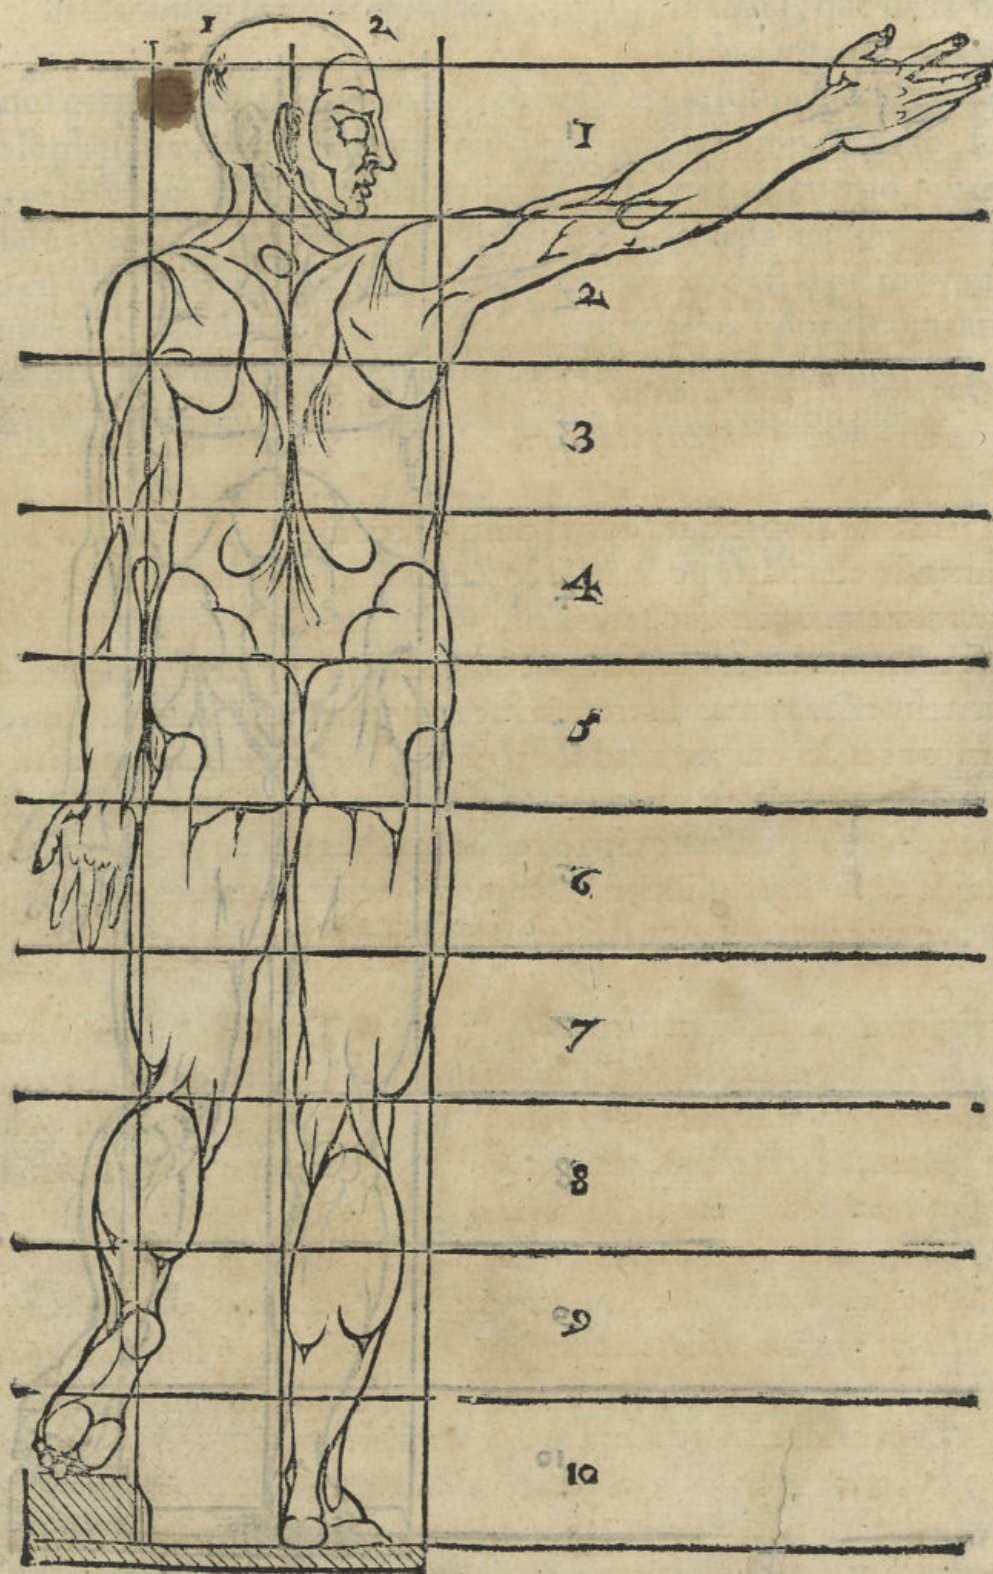 1 2
1
2
3
4
5
6
7
8
9
10